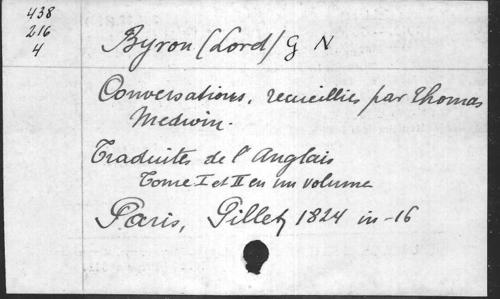 438
216
4
Byron (Lord) G N
Conversations, recueillies par Thomas
Medwin.
Traduites de l'Anglais
Tome I et II en un volume
Paris, Pillet, 1824 in-16